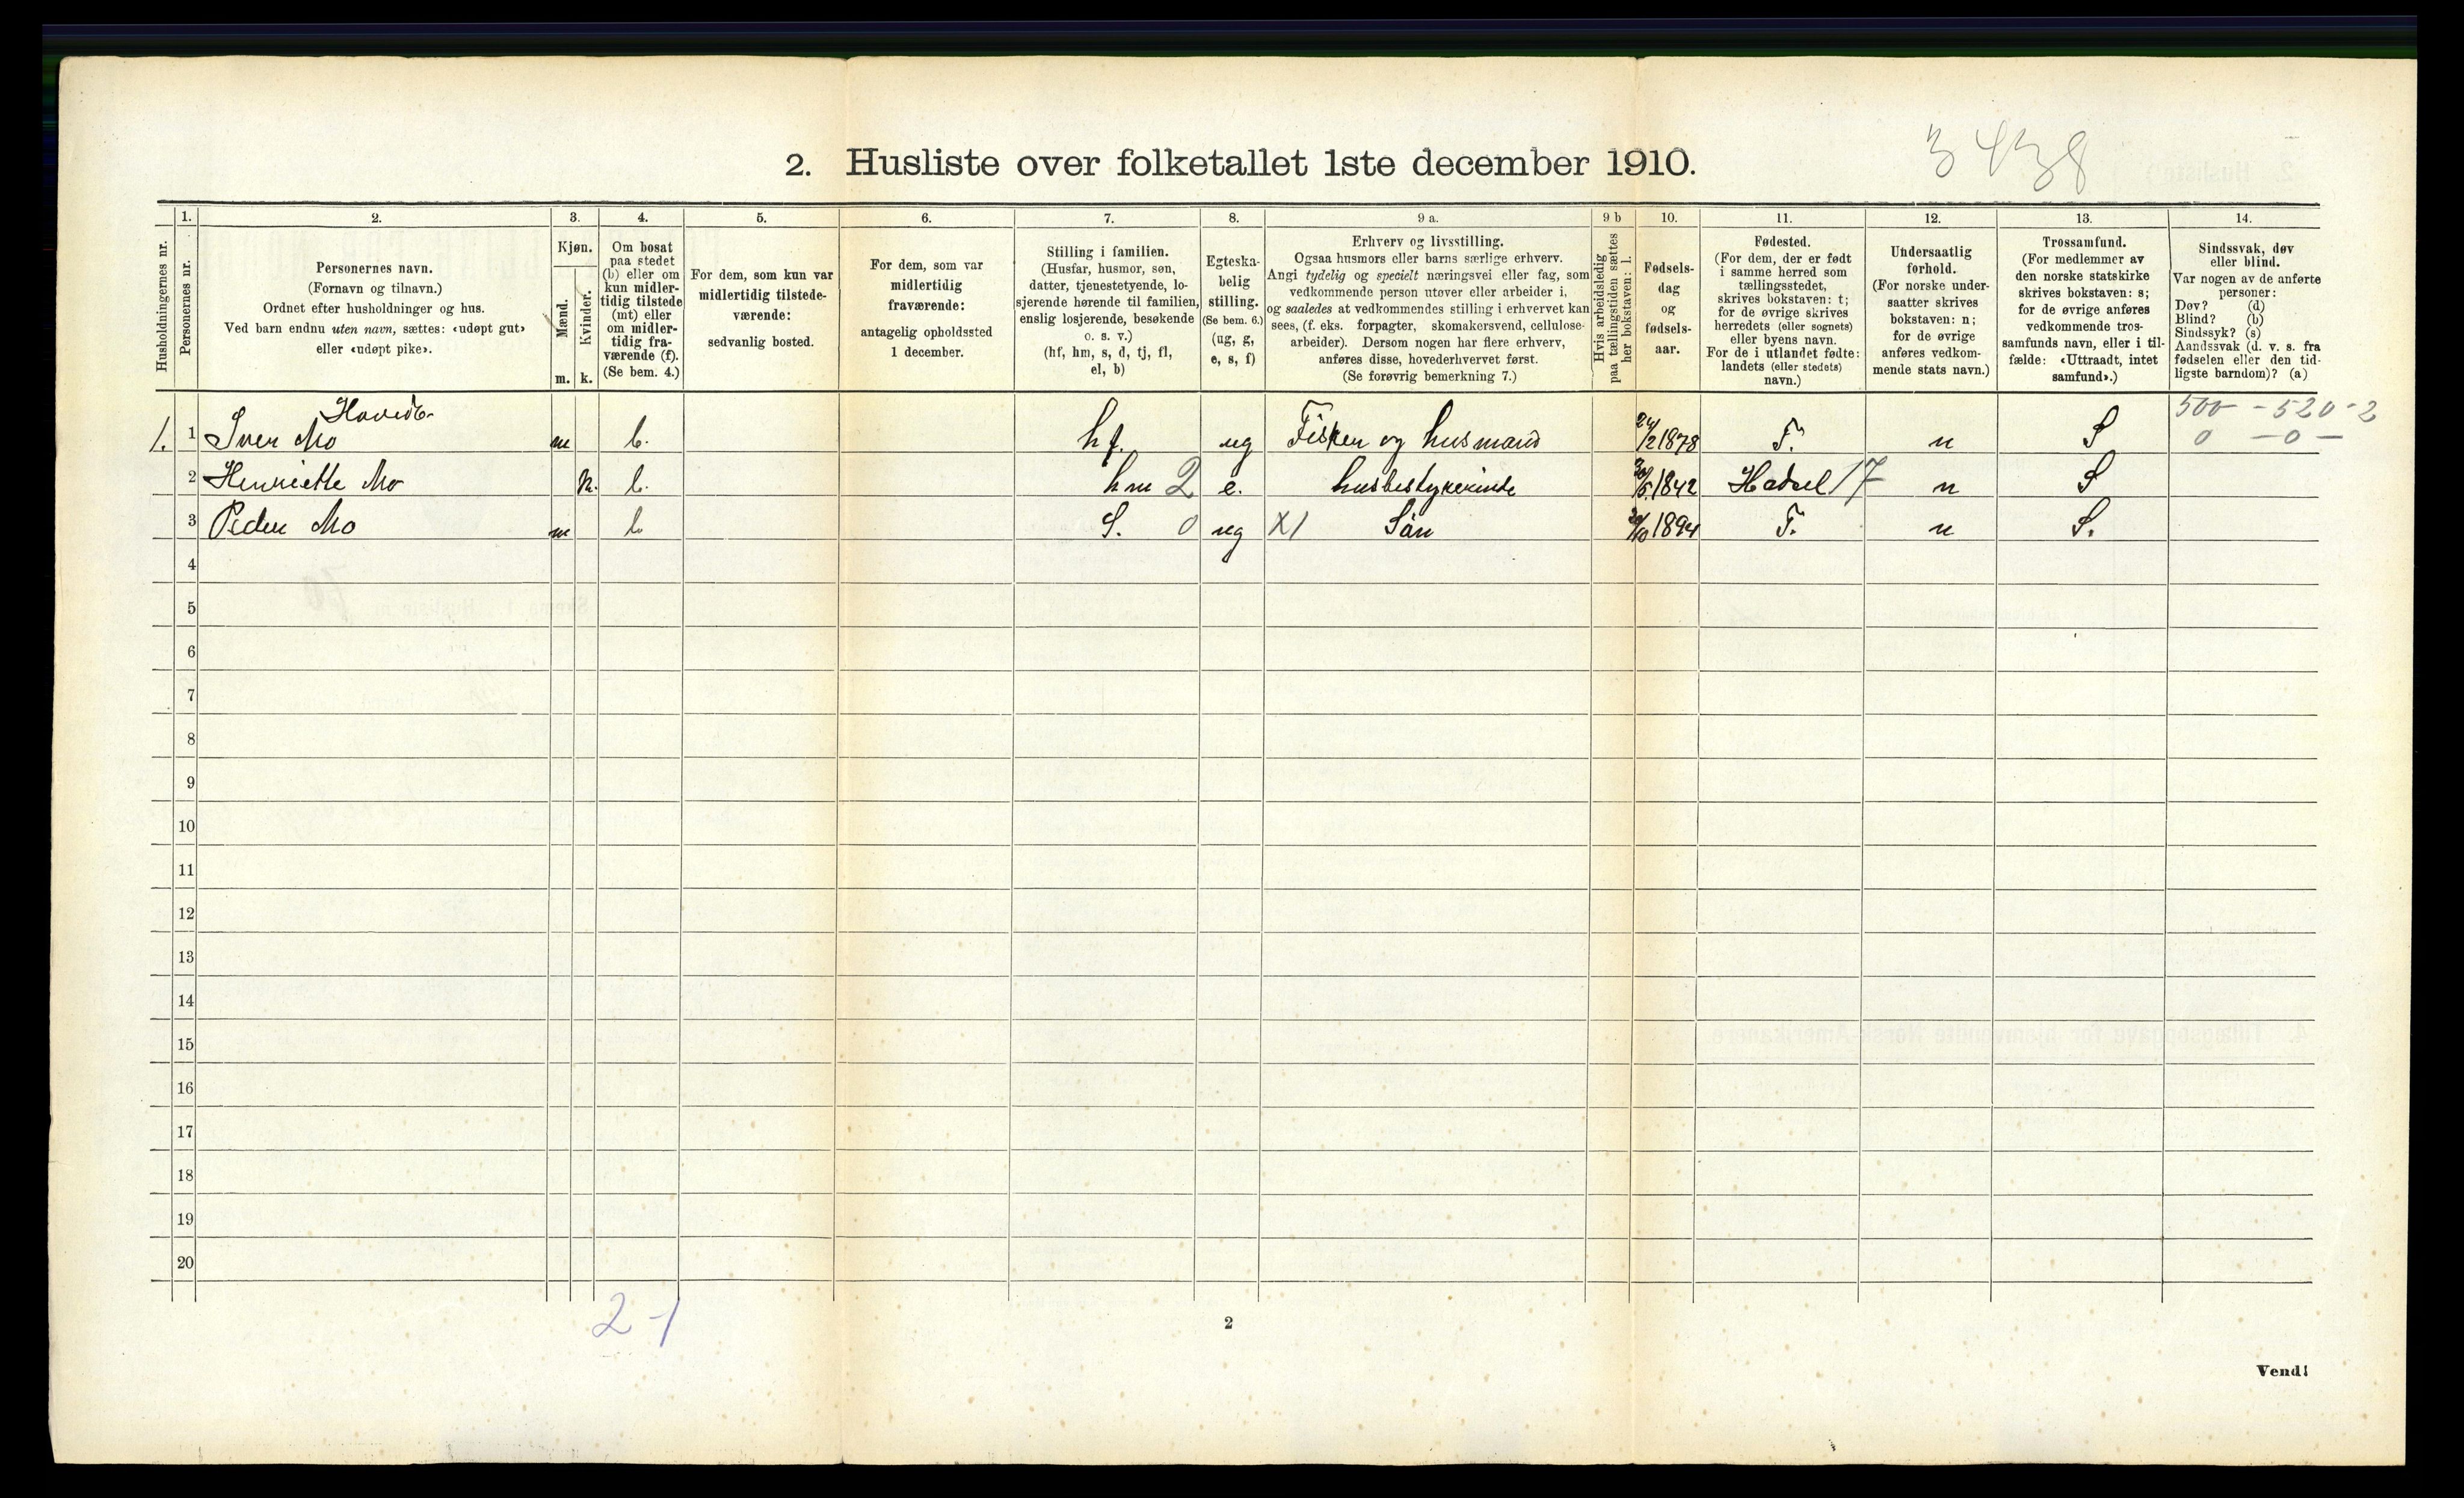 2. Husliste over folketallet 1ste december 1910.
3438
Husholdningernes nr.
1.
Personernes nr.
2.
Personernes navn.
(Fornavn og tilnavn.)
Ordnet efter husholdninger og hus.
Ved barn endnu uten navn, sættes: «udøpt gut»
eller «udøpt pike».
3.
Kjøn.
Mænd.
Kvinder.
m. k.
4.
Om bosat
paa stedet
(b) eller om
kun midler-
tidig tilstede
(mt) eller
om midler-
tidig fra-
værende (f).
(Se bem. 4.)
5.
For dem, som kun var
midlertidig tilstede-
værende:
sedvanlig bosted.
6.
For dem, som var
midlertidig
fraværende:
antagelig opholdssted
1 december.
7.
Stilling i familien.
(Husfar, husmor, søn,
datter, tjenestetyende, lo-
sjerende hørende til familien,
enslig losjerende, besøkende
o. s. v.)
(hf, hm, s, d, tj, fl,
el, b)
8.
Egteska-
belig
stilling.
(Se bem. 6.)
(ug, g,
e, s, f)
9 a.
Erhverv og livsstilling.
Ogsaa husmors eller barns særlige erhverv.
Angi tydelig og specielt næringsvei eller fag, som
vedkommende person utøver eller arbeider i,
og saaledes at vedkommendes stilling i erhvervet kan
sees, (f. eks. forpagter, skomakersvend, cellulose-
arbeider). Dersom nogen har flere erhverv,
anføres disse, hovederhvervet først.
(Se forøvrig bemerkning 7.)
9 b
Hvis arbeidsledig
paa tællingstiden sættes
her bokstaven: l.
10.
Fødsels-
dag
og
fødsels-
aar.
11.
Fødested.
(For dem, der er født
i samme herred som
tællingsstedet,
skrives bokstaven: t;
for de øvrige skrives
herredets (eller sognets)
eller byens navn.
For de i utlandet fødte:
landets (eller stedets)
navn.)
12.
Undersaatlig
forhold.
(For norske under-
saatter skrives
bokstaven: n;
for de øvrige
anføres vedkom-
mende stats navn.)
13.
Trossamfund.
(For medlemmer av
den norske statskirke
skrives bokstaven: s;
for de øvrige anføres
vedkommende tros-
samfunds navn, eller i til-
fælde: «Uttraadt, intet
samfund».)
14.
Sindssvak, døv
eller blind.
Var nogen av de anførte
personer:
Døv? (d)
Blind? (b)
Sindssyk? (s)
Aandssvak (d. v. s. fra
fødselen eller den tid-
ligste barndom)? (a)
500 - 520 - 2
1. 1 Iver Mo m b. hf. ug Fisker og husmand 24/2 1878 T. n S 0 - 0 -
2 Henriette Mo k. b. hm 2 e. husbestyrerinde 1842 Hadsel 17 n S
3 Peder Mo m b S. 0 ug X1 Sön 1894 T. n S.
4
5
6
7
8
9
10
11
12
13
14
15
16
17
18
19
20
2-1
2
Vend!